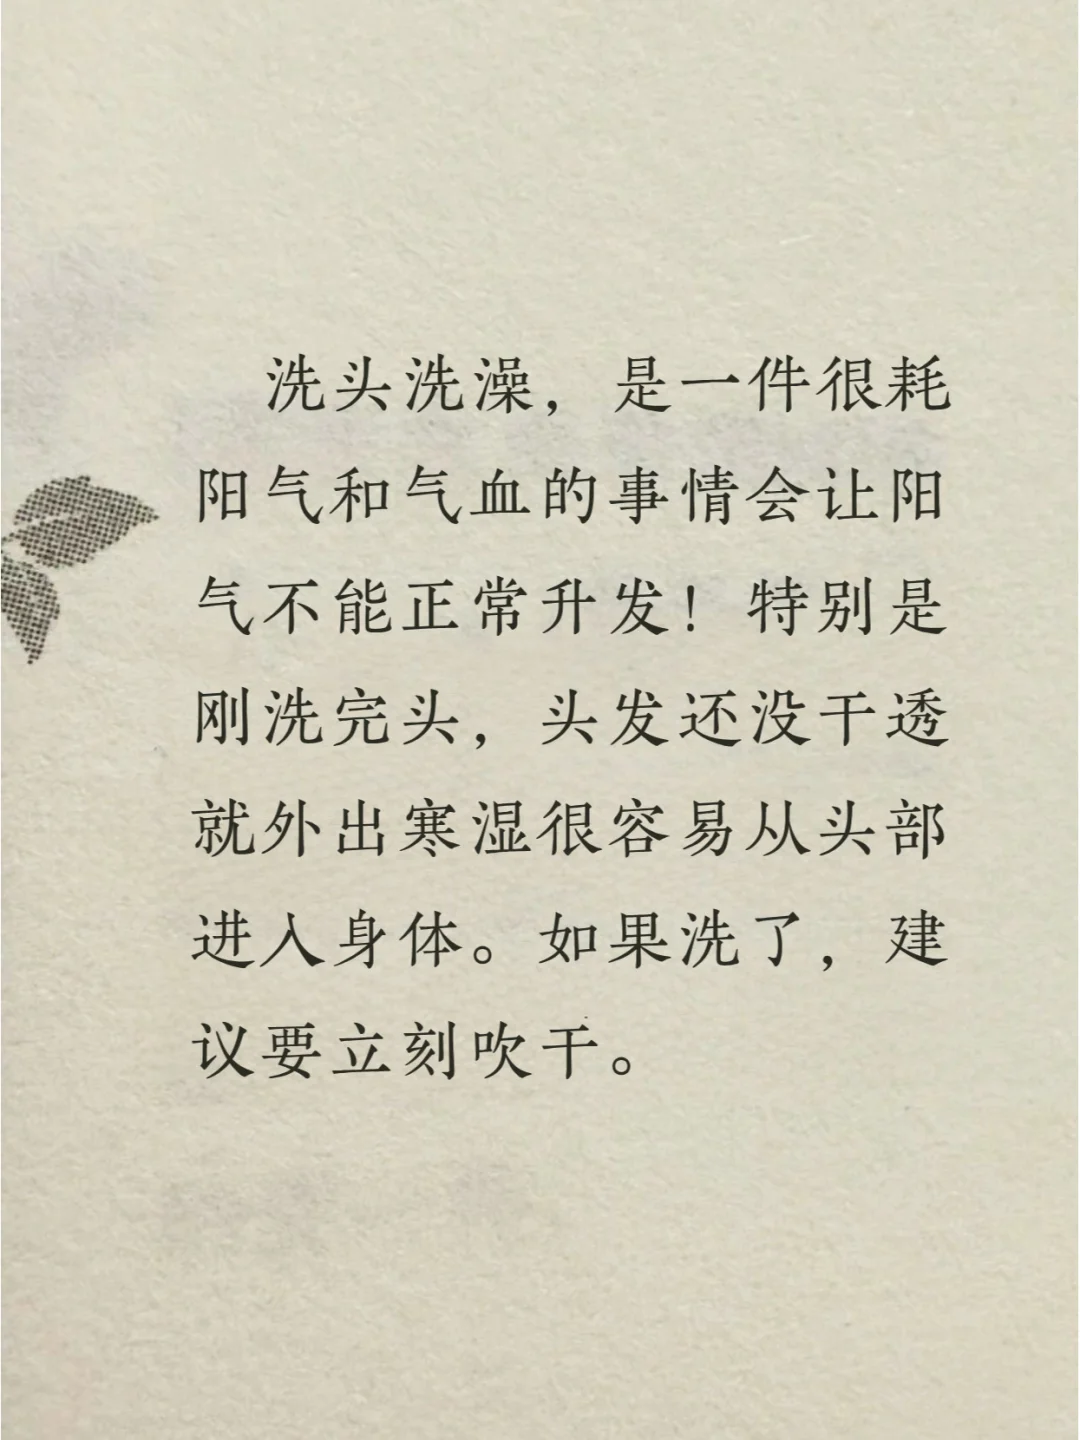 洗头洗澡，是一件很耗
阳气和气血的事情会让阳
气不能正常升发！特别是
刚洗完头，头发还没干透
就外出寒湿很容易从头部
进入身体。如果洗了，建
议要立刻吹干。